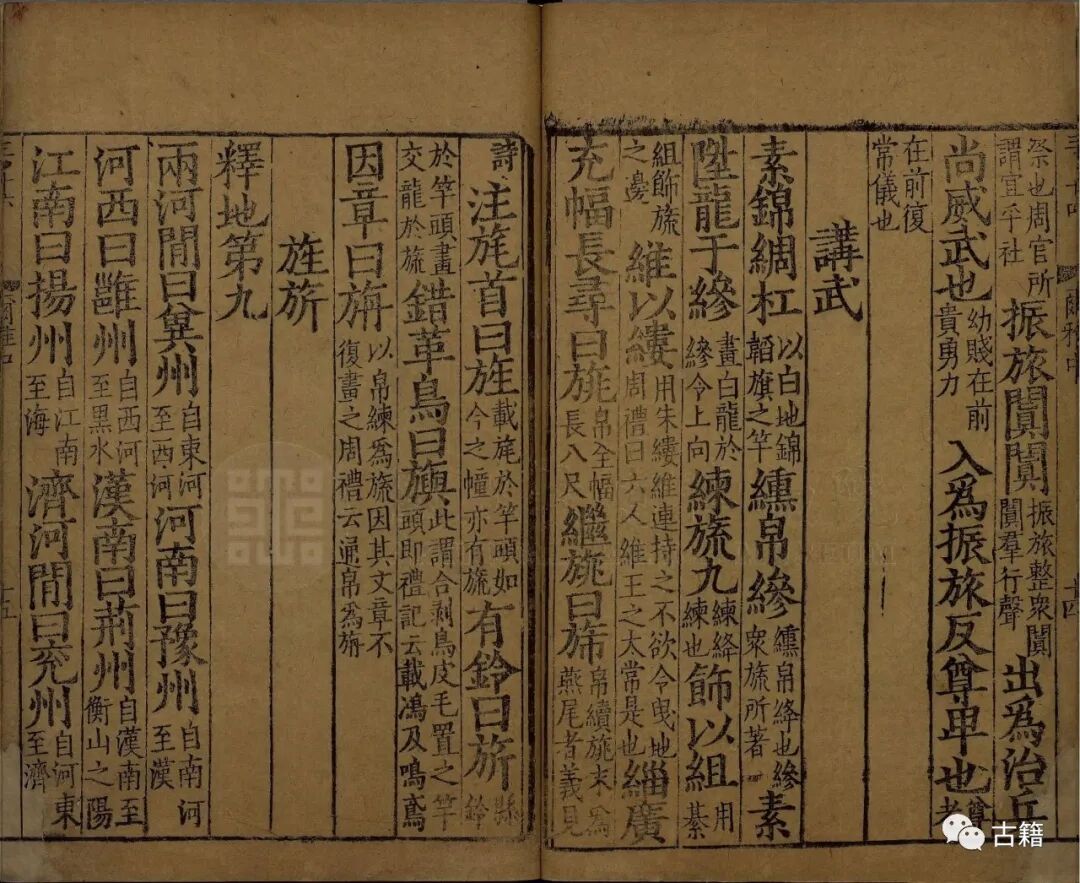 祭也周官所謂宜乎社振旅闐闐振旅整衆闐闐羣行聲出爲治兵
尚威武也幼賤在前貴勇力入爲振旅反尊卑也尊老
在前復常儀也
講武
素錦綢杠以白地錦韜旗之竿纁帛縿纁帛絳也縿衆旒所著素
陞龍于縿畫白龍於縿令上向練旒九練絳練也飾以組用綦
組飾旒之邊維以縷用朱縷維連持之不欲令曳地周禮曰六人維王之太常是也緇廣
充幅長尋曰旐帛全幅長八尺繼旐曰旆帛續旐末爲燕尾者義見
詩注旄首曰旌載旄於竿頭如今之幢亦有旒有鈴曰旂縣鈴
於竿頭畫交龍於旒錯革鳥曰旟此謂合剥鳥皮毛置之竿頭即禮記云載鴻及鳴鳶
因章曰旃以帛練爲旒因其文章不復畫之周禮云通帛爲旃
旌旂
釋地第九
兩河閒曰兾州自東河至西河河南曰豫州自南河至漢
河西曰雝州自西河至黑水漢南曰荊州自漢南至衡山之陽
江南曰揚州自江南至海濟河閒曰兖州自河東至濟
古籍